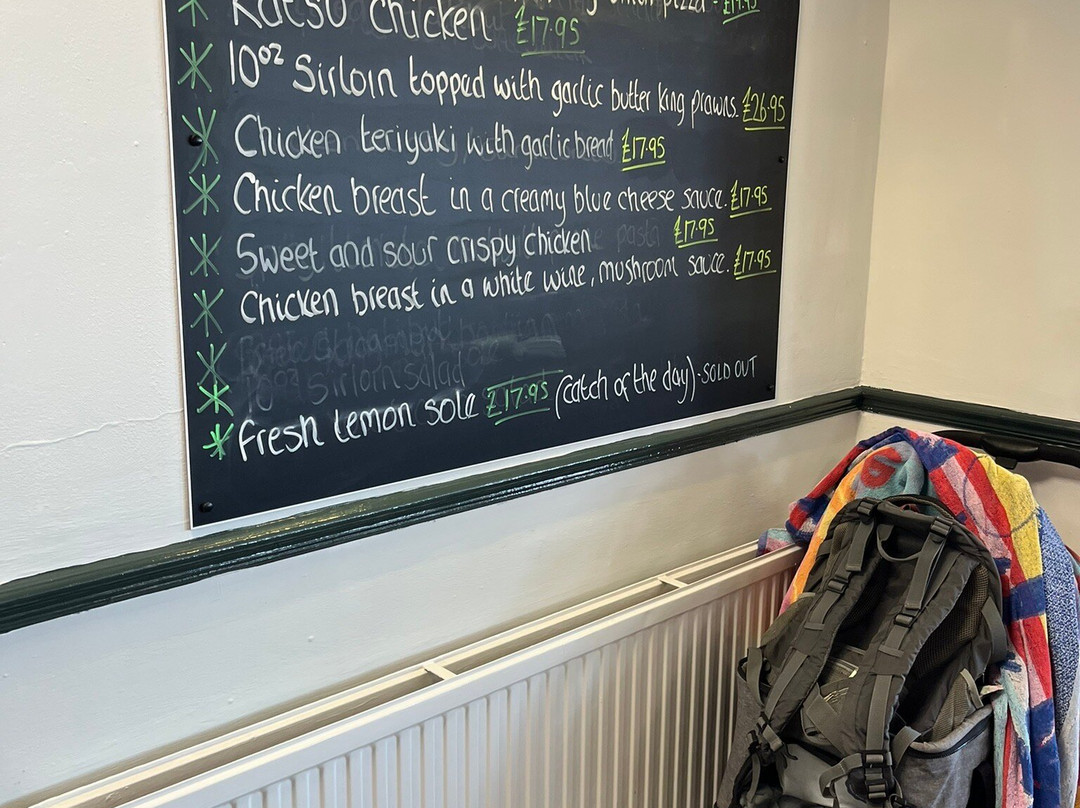 pizza - £19.95
Katsu Chicken £17.95
10oz Sirloin topped with garlic butter king prawns. £26.95
Chicken teriyaki with garlic bread £17.95
Chicken breast in a creamy blue cheese sauce. £17.95
Sweet and sour crispy chicken £17.95
Chicken breast in a white wine, mushroom sauce. £17.95
10oz Sirloin salad
Fresh lemon sole £17.95 (catch of the day) - SOLD OUT